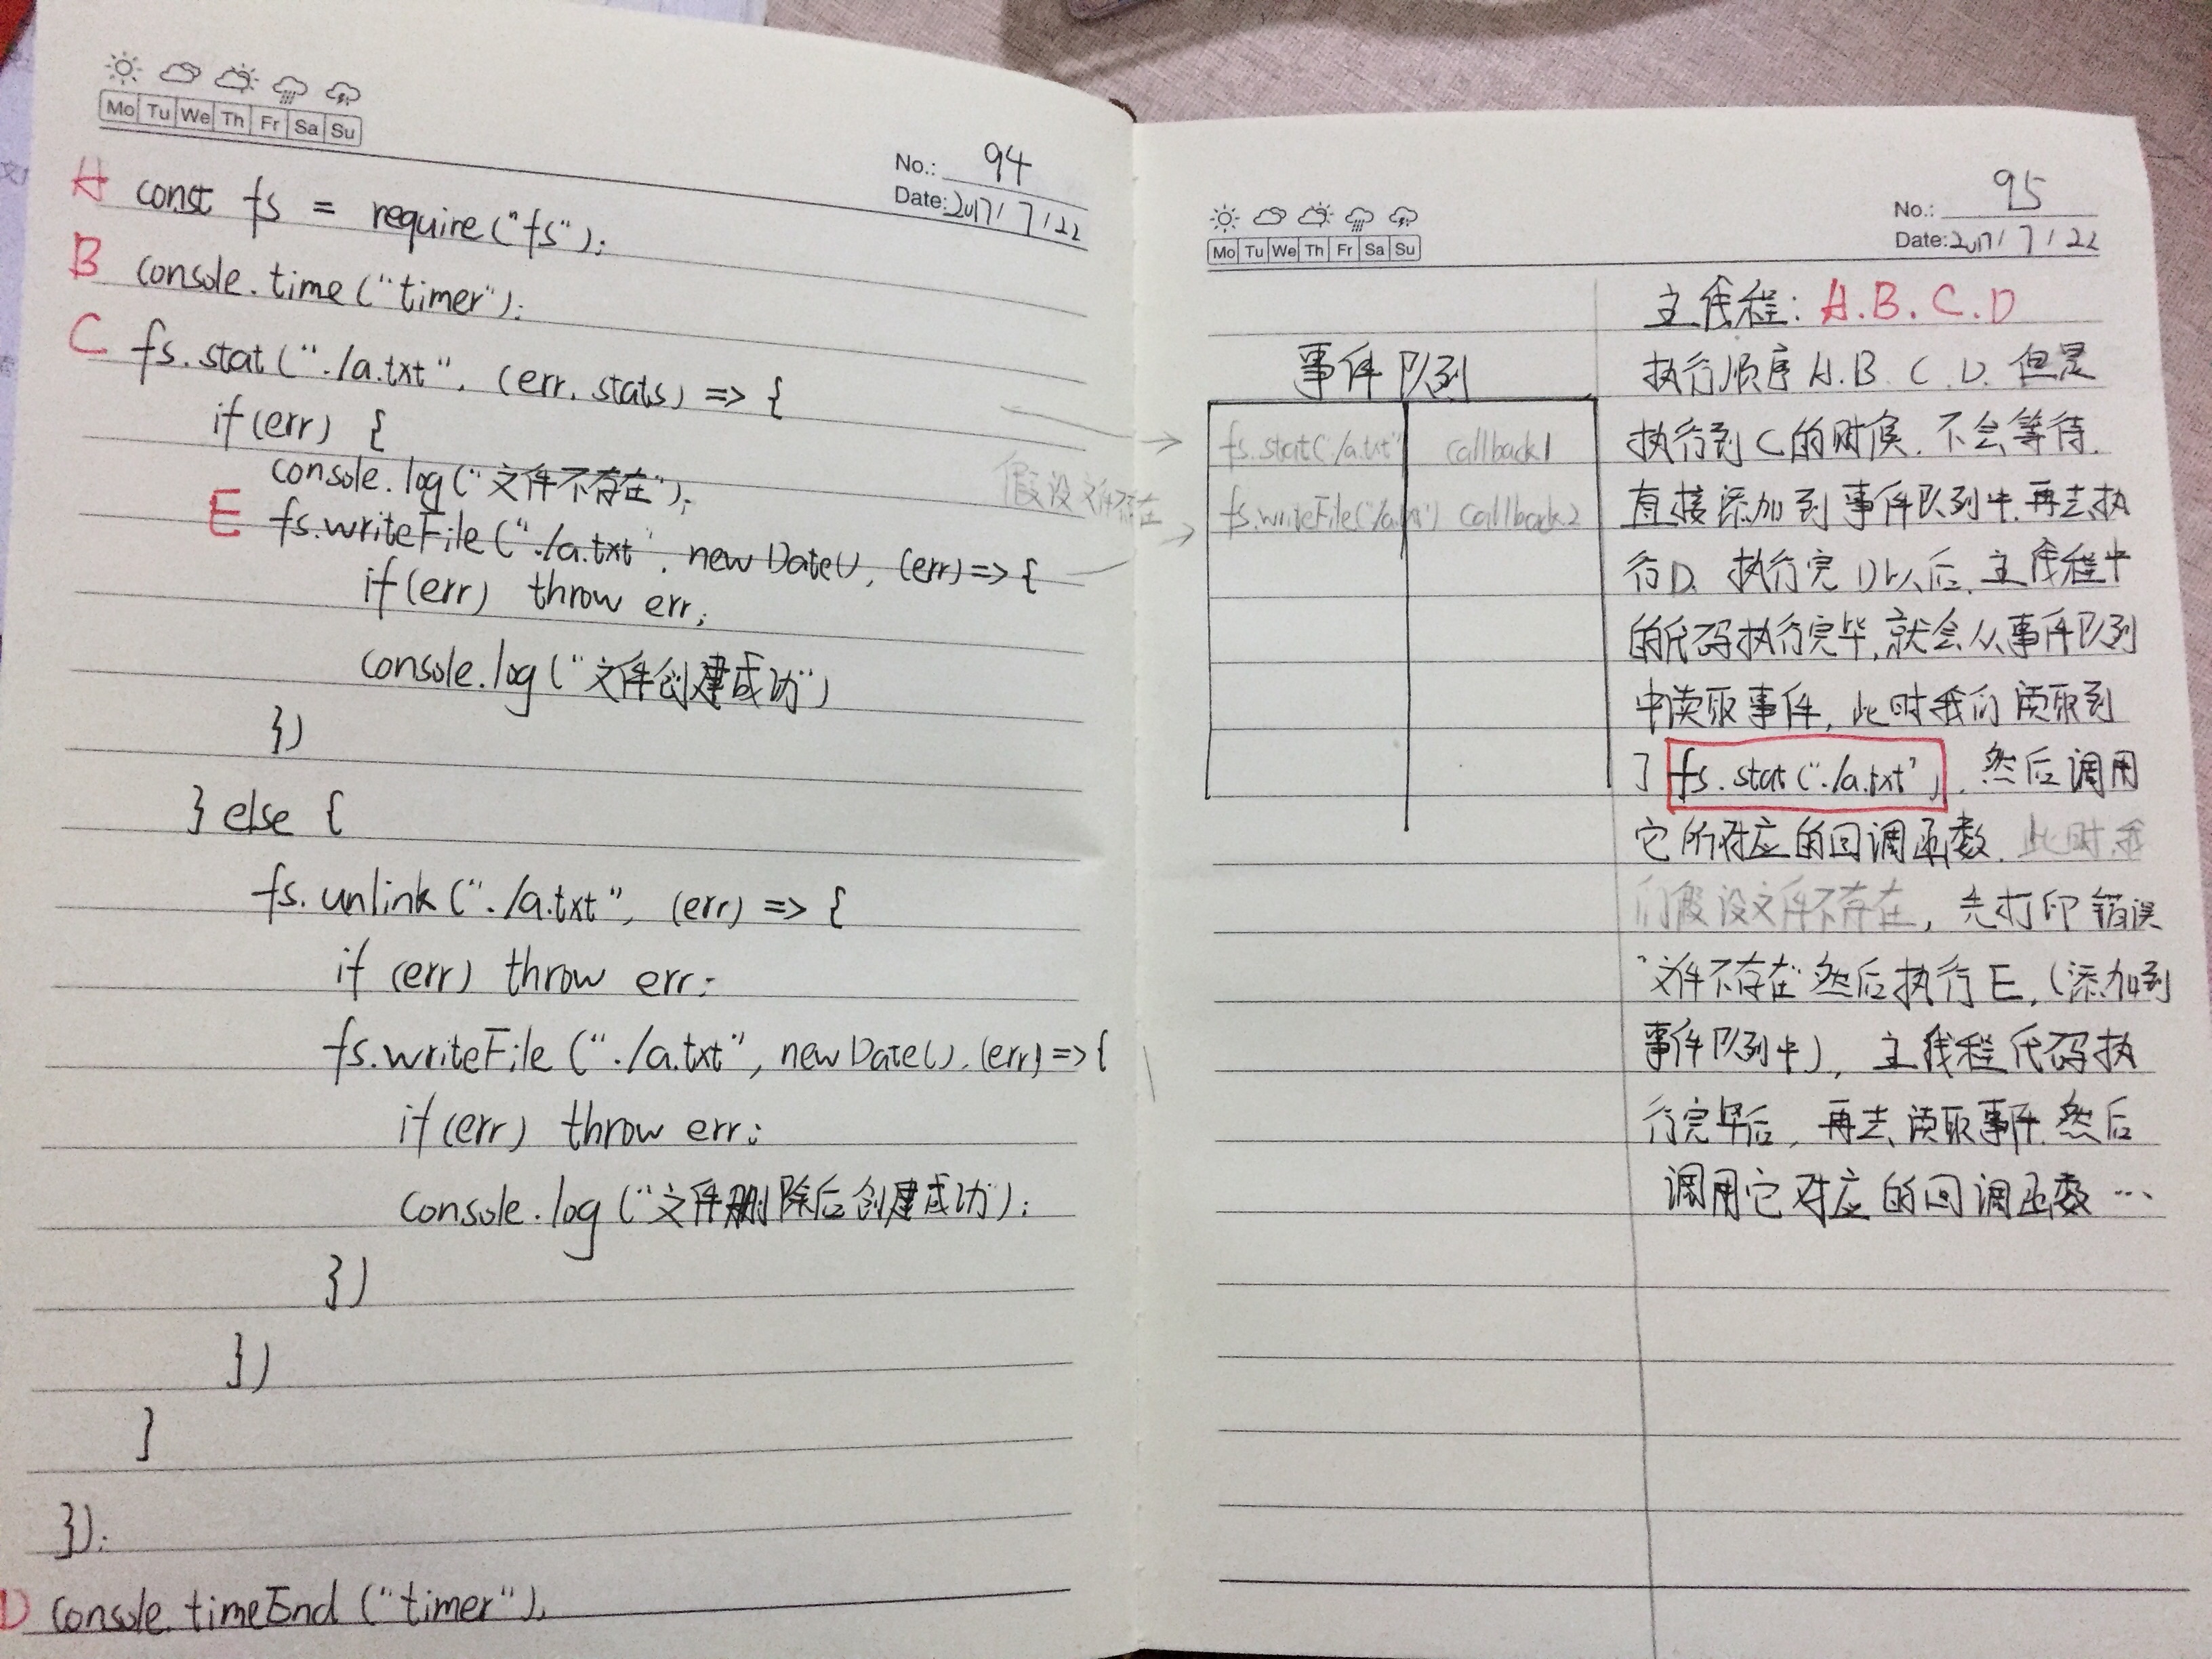 Mo Tu We Th Fr Sa Su
No.: 94
Date: 2017/7/22
A const fs = require("fs");
B console.time("timer");
C fs.stat("./a.txt", (err, stats) => {
if(err) {
console.log("文件不存在");
E fs.writeFile("./a.txt", new Date(), (err) => {
if(err) throw err;
console.log("文件创建成功")
})
} else {
fs.unlink("./a.txt", (err) => {
if (err) throw err;
fs.writeFile("./a.txt", new Date(), (err) => {
if(err) throw err;
console.log("文件删除后创建成功");
})
})
}
});
D console.timeEnd("timer");
Mo Tu We Th Fr Sa Su
No.: 95
Date: 2017/7/22
事件队列
fs.stat("/a.txt") callback1
假设文件不存在
fs.writeFile("/a.txt") callback2
主线程: A.B.C.D
执行顺序 A.B.C.D. 但是
执行到C的时候, 不会等待.
直接添加到事件队列中.再去执
行D. 执行完D以后, 主线程中
的代码执行完毕,就会从事件队列
中读取事件, 此时我们读取到
了 fs.stat("./a.txt"), 然后调用
它所对应的回调函数. 此时我
们假设文件不存在, 先打印错误
"文件不存在"然后执行E,(添加到
事件队列中), 主线程代码执
行完毕后, 再去读取事件.然后
调用它对应的回调函数…